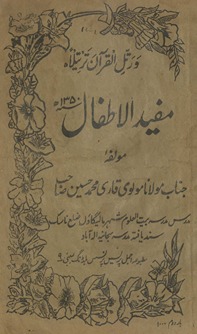 ورتل القرآن ترتیلا
مفید الاطفال ۱۳۵۰ھ
مولفہ
جناب مولانا مولوی قاری محمد حسین صاحب
مدرس مدرسہ بیت العلوم شہر مالیگاؤں ضلع ناسک
سند یافتہ مدرسہ سبحانیہ الہ آباد